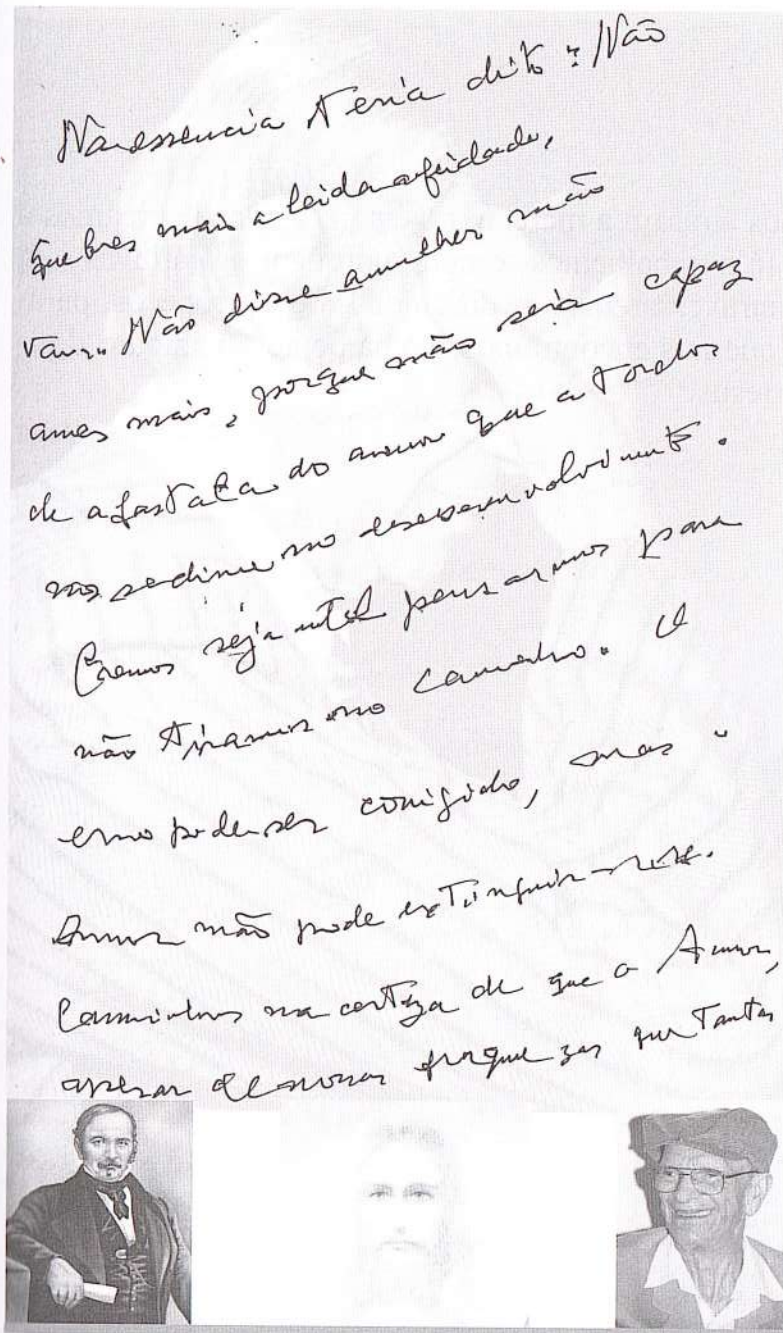 Na essencia teria dito: Não
quebres mais a lei da afeidade,
Não disse a mulher não
ames mais, porque não seria capaz
de afastala do amor que a todos
nos redime no desesenvolvimento.
Cremos seja util pensarmos para
não tiramos no caminho. O
erro pode ser corrigido, mas o
Amor não pode extinguir-se.
Caminhos na certeza de que o Amor,
apesar de nossas fraquezas que tantas